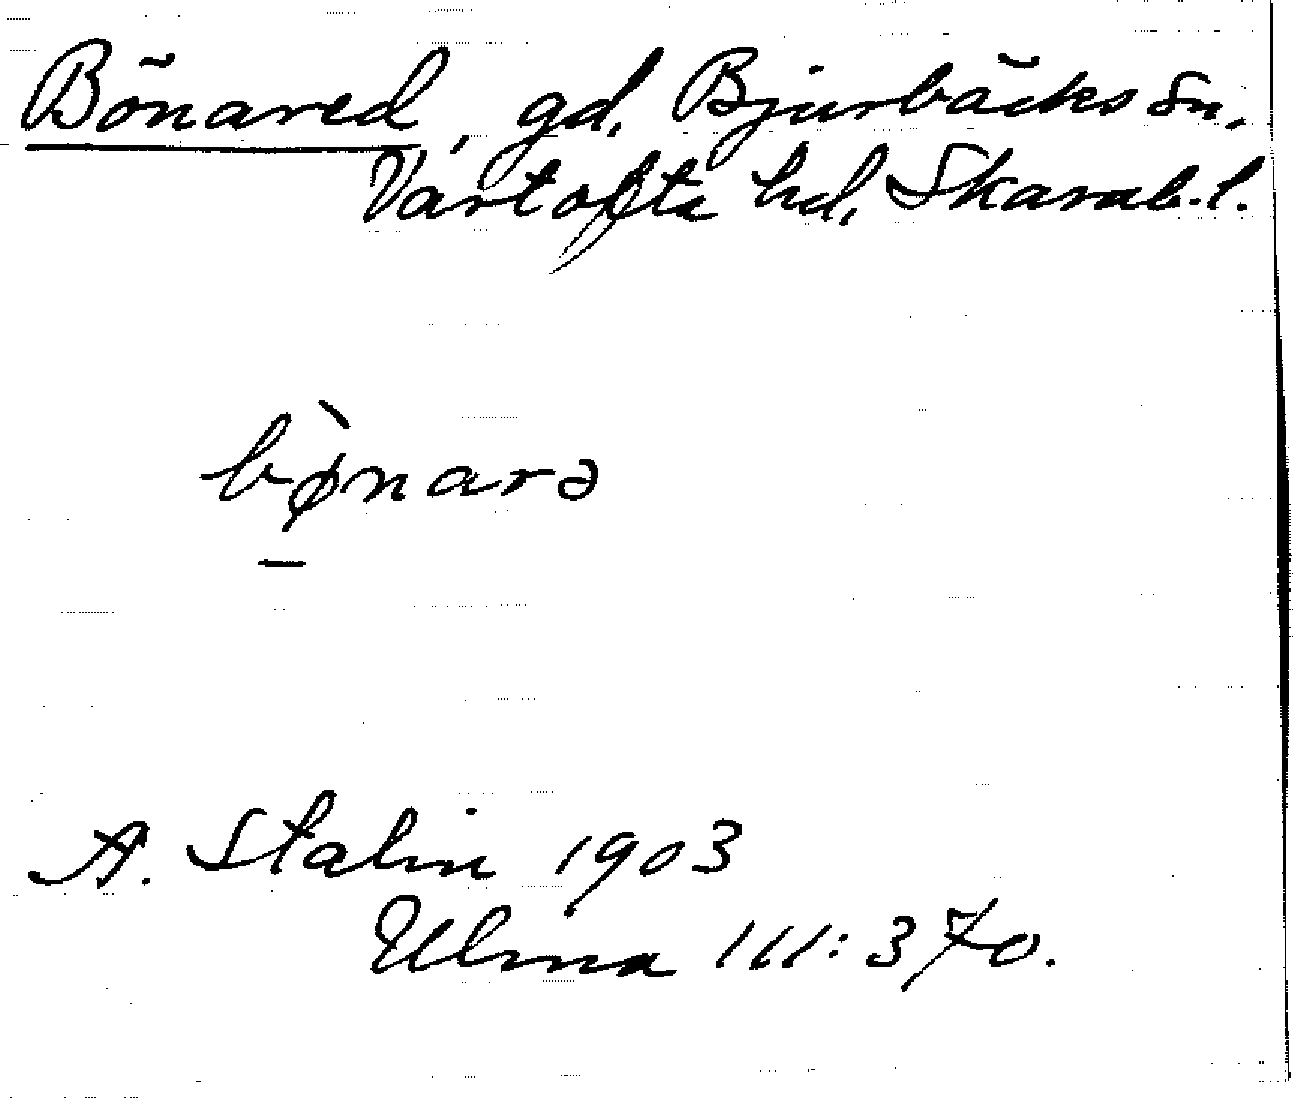 Bönared, gd, Bjurbäcks sn,
Vartofta hd, Skarab.l.
bø̀narə
A. Stalin 1903
Ulma 111:370.